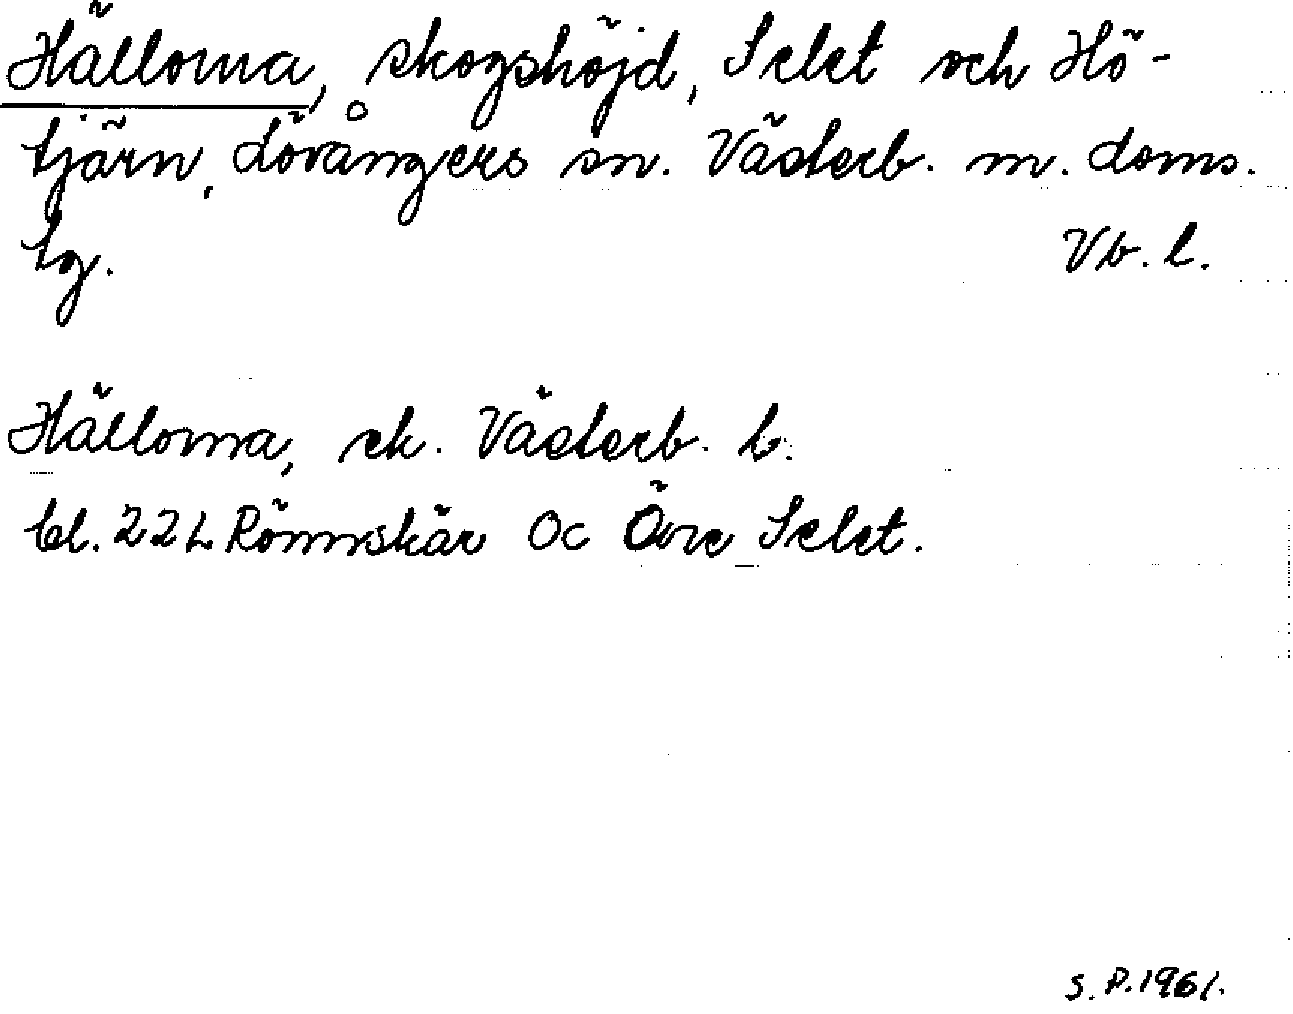 Hällorna, skogshöjd, Selet och Hö-
tjärn, Lövångers sn. Västerb. m. doms.
tg. Vb. l.
Hällorna, sk. Västerb. b.
bl. 22L Rönnskär Oc Övre Selet.
S. P. 1961.